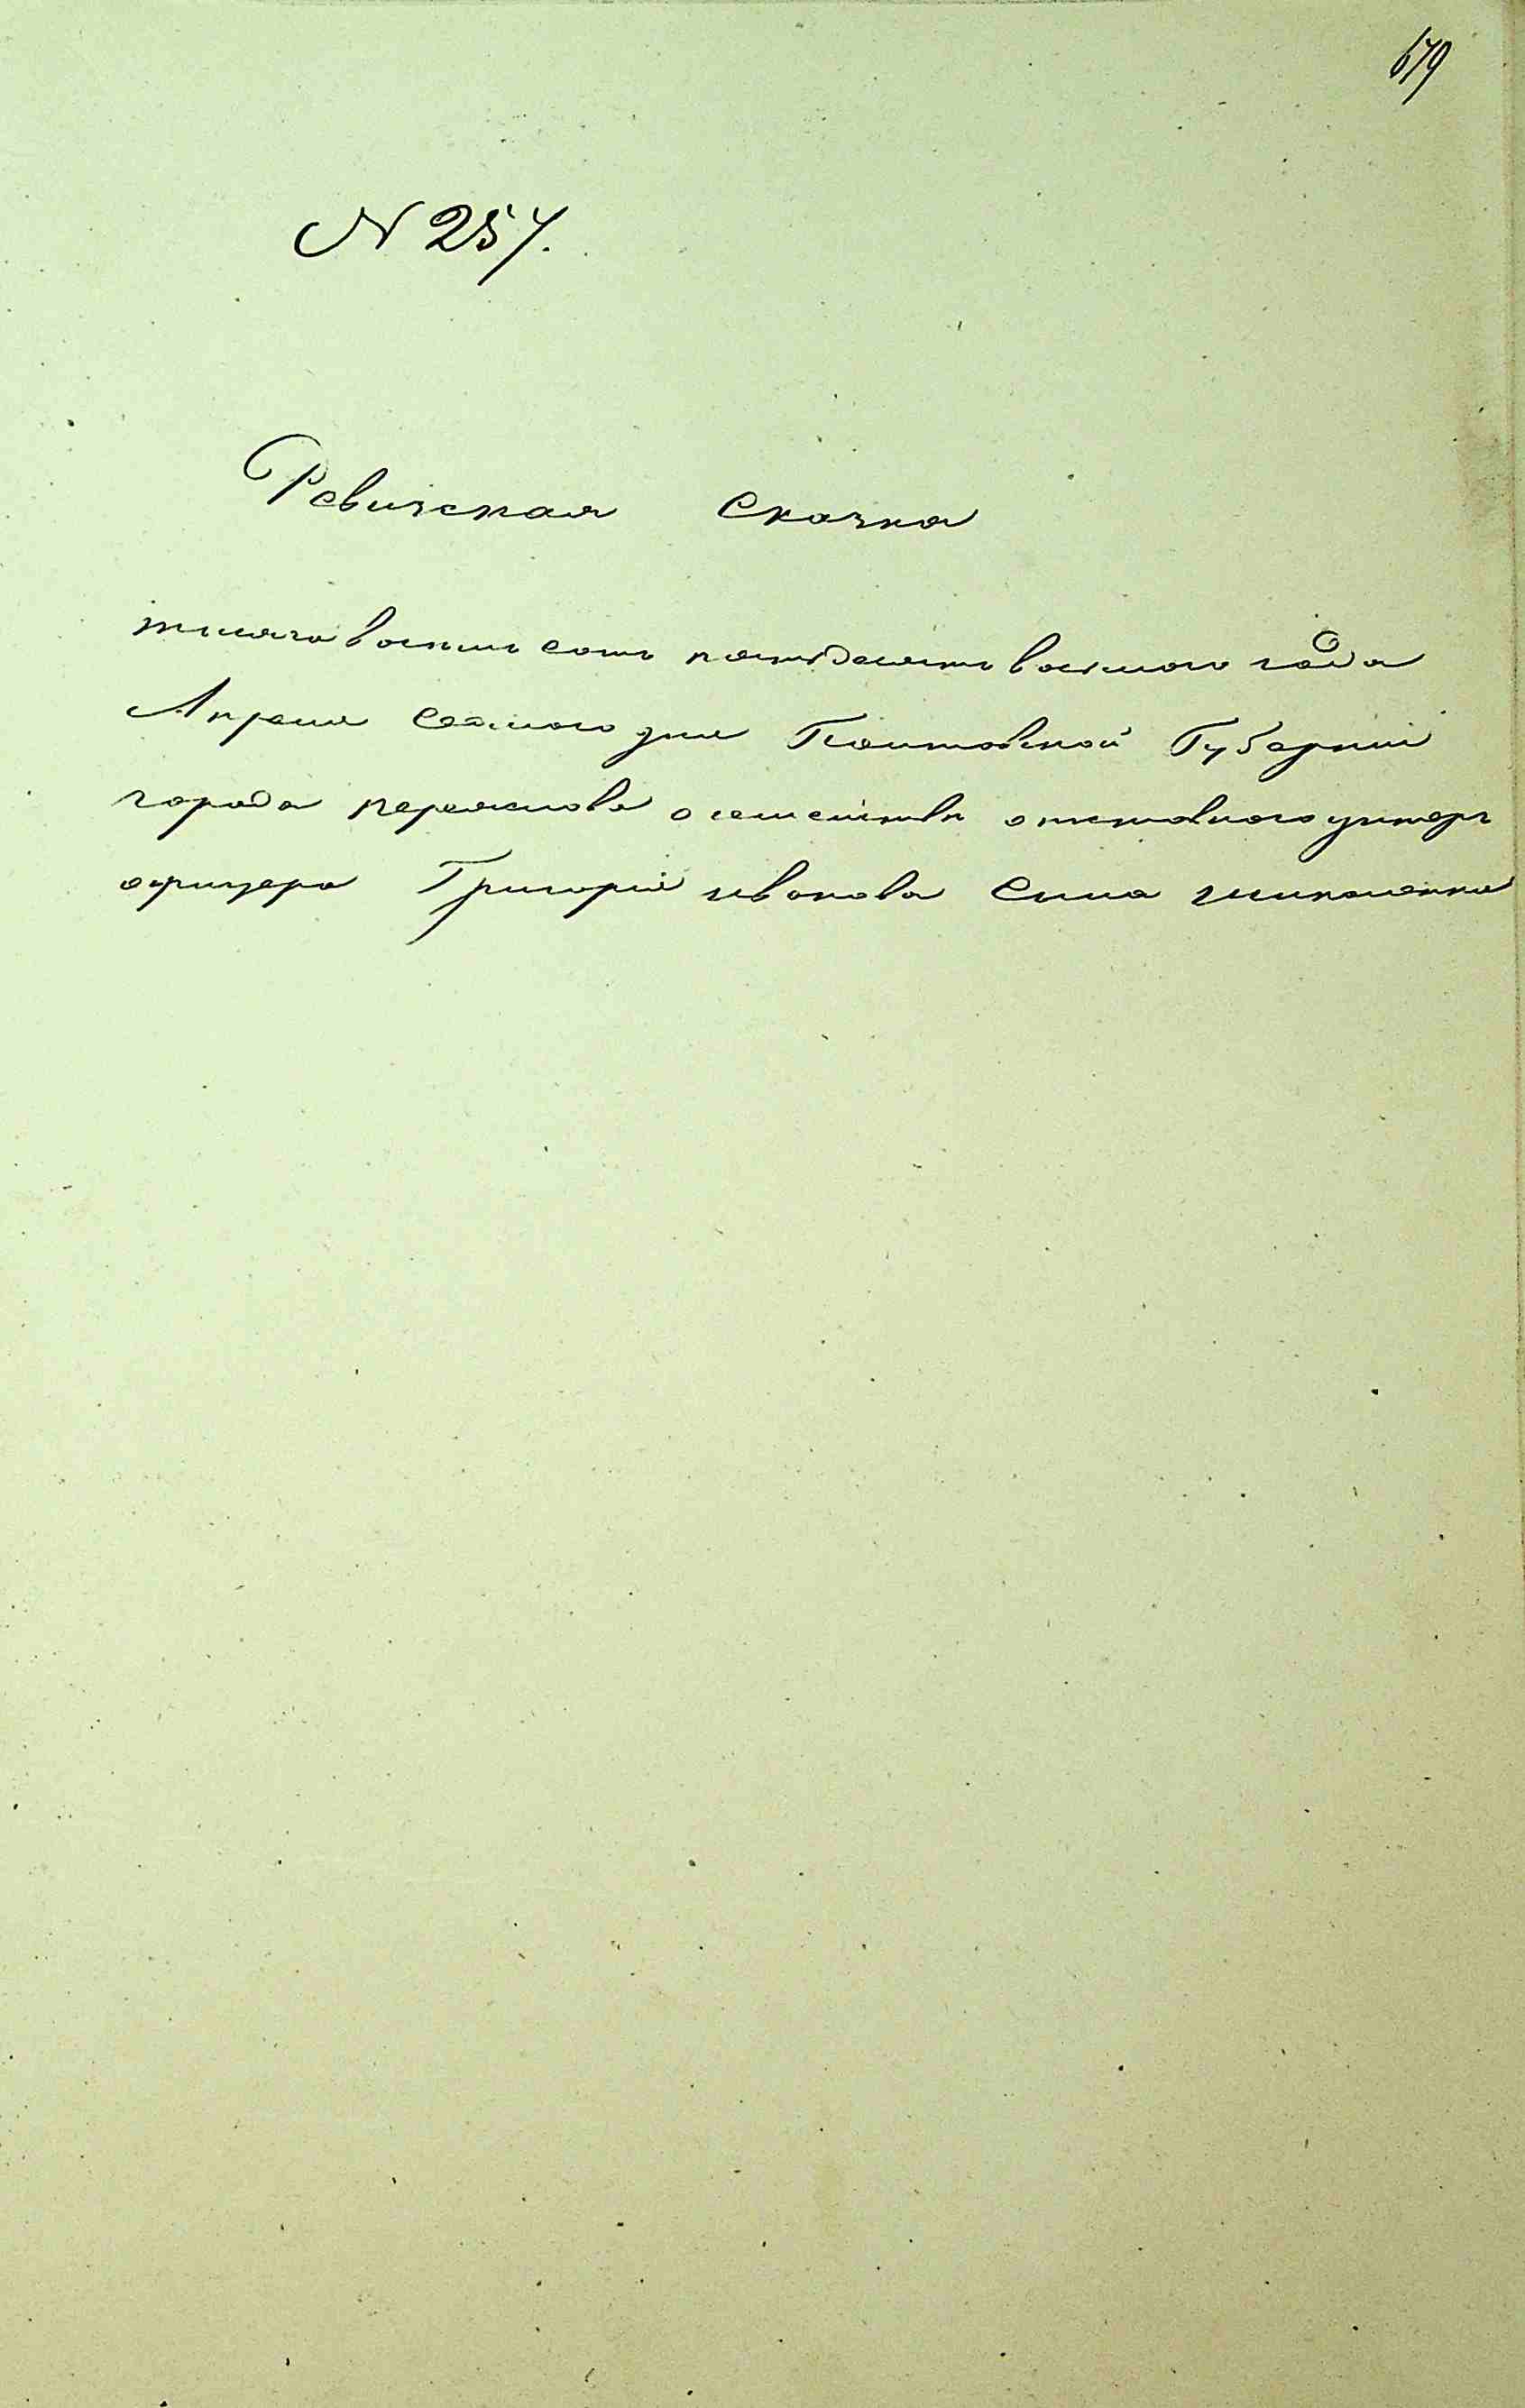 679
N 257.
Ревизская Сказка
тысяча восемь сотъ пятьдесятъ восмого года
Апреля Седмого дня Полтавской Губерніи
города переяслова о семействѣ отставного унтеръ
офицера Григорія иванова Сына